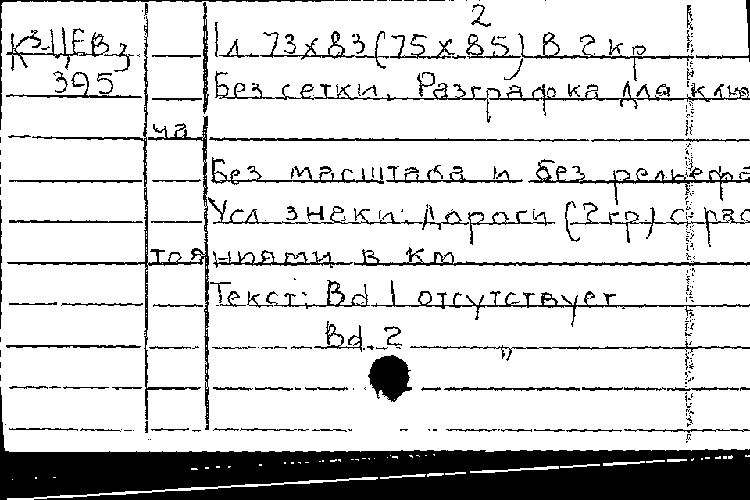 К³ЦЕВ₃ 1 л. 73х83(75х85)² в 2 кр
395 Без сетки. Разграфка для клю
ча
Без масштаба и без рельефа
Усл знаки: Дороги (2 кр) с рас
тояниями в км
Текст: Bd. 1 отсутствует
Bd. 2 "